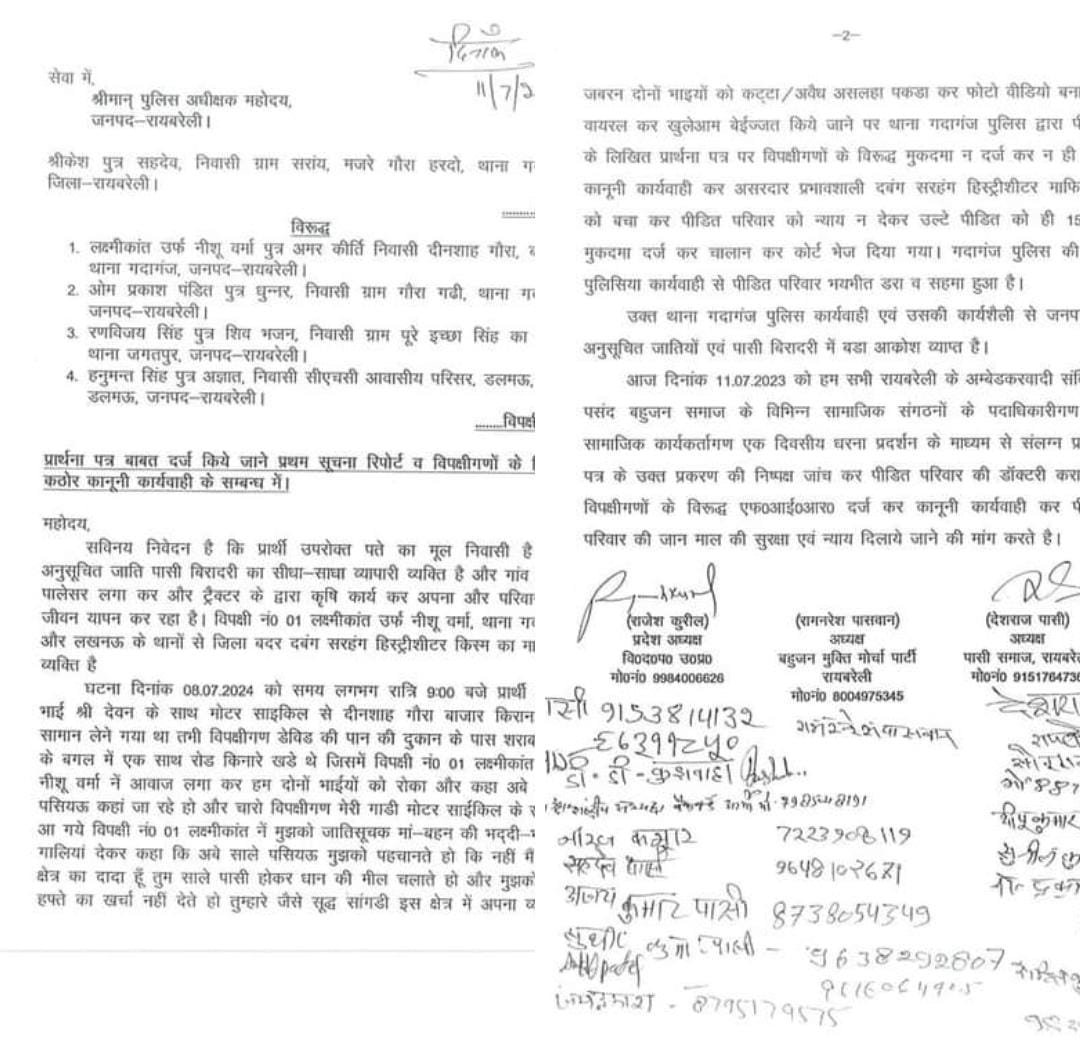 दिनांक
11/7/2
सेवा में,
श्रीमान् पुलिस अधीक्षक महोदय,
जनपद–रायबरेली।
श्रीकेश पुत्र सहदेव, निवासी ग्राम सरांय, मजरे गौरा हरदो, थाना ग
जिला–रायबरेली।
विरूद्ध
1. लक्ष्मीकांत उर्फ नीशू वर्मा पुत्र अमर कीर्ति निवासी दीनशाह गौरा,
थाना गदागंज, जनपद–रायबरेली।
2. ओम प्रकाश पंडित पुत्र धुन्नर, निवासी ग्राम गौरा गढी, थाना ग
जनपद–रायबरेली।
3. रणविजय सिंह पुत्र शिव भजन, निवासी ग्राम पूरे इच्छा सिंह का
थाना जगतपुर, जनपद–रायबरेली।
4. हनुमन्त सिंह पुत्र अज्ञात, निवासी सीएचसी आवासीय परिसर, डलमऊ,
डलमऊ, जनपद–रायबरेली।
........विपक्षी
प्रार्थना पत्र बाबत दर्ज किये जाने प्रथम सूचना रिपोर्ट व विपक्षीगणों के
कठोर कानूनी कार्यवाही के सम्बन्ध में।
महोदय,
सविनय निवेदन है कि प्रार्थी उपरोक्त पते का मूल निवासी है
अनुसूचित जाति पासी बिरादरी का सीधा–साधा व्यापारी व्यक्ति है और गांव
पालेसर लगा कर और ट्रैक्टर के द्वारा कृषि कार्य कर अपना और परिवा
जीवन यापन कर रहा है। विपक्षी नं0 01 लक्ष्मीकांत उर्फ नीशू वर्मा, थाना ग
और लखनऊ के थानों से जिला बदर दबंग सरहंग हिस्ट्रीशीटर किस्म का मा
व्यक्ति है
घटना दिनांक 08.07.2024 को समय लगभग रात्रि 9:00 बजे प्रार्थी
भाई श्री देवन के साथ मोटर साइकिल से दीनशाह गौरा बाजार किरान
सामान लेने गया था तभी विपक्षीगण डेविड की पान की दुकान के पास शराब
के बगल में एक साथ रोड किनारे खडे थे जिसमें विपक्षी नं0 01 लक्ष्मीकांत
नीशू वर्मा नें आवाज लगा कर हम दोनों भाईयों को रोका और कहा अबे
पसियऊ कहां जा रहे हो और चारो विपक्षीगण मेरी गाडी मोटर साईकिल के
आ गये विपक्षी नं0 01 लक्ष्मीकांत नें मुझको जातिसूचक मां–बहन की भद्दी–
गालियां देकर कहा कि अबे साले पसियऊ मुझको पहचानते हो कि नहीं मैं
क्षेत्र का दादा हूँ तुम साले पासी होकर धान की मील चलाते हो और मुझको
हफ्ते का खर्चा नहीं देते हो तुम्हारे जैसे सूद्ध सांगडी इस क्षेत्र में अपना व्य
–2–
जबरन दोनों भाइयों को कट्टा/अवैध असलहा पकडा कर फोटो वीडियो बना
वायरल कर खुलेआम बेईज्जत किये जाने पर थाना गदागंज पुलिस द्वारा पी
के लिखित प्रार्थना पत्र पर विपक्षीगणों के विरूद्ध मुकदमा न दर्ज कर न ही
कानूनी कार्यवाही कर असरदार प्रभावशाली दबंग सरहंग हिस्ट्रीशीटर माफि
को बचा कर पीडित परिवार को न्याय न देकर उल्टे पीडित को ही 15
मुकदमा दर्ज कर चालान कर कोर्ट भेज दिया गया। गदागंज पुलिस की
पुलिसिया कार्यवाही से पीडित परिवार भयभीत डरा व सहमा हुआ है।
उक्त थाना गदागंज पुलिस कार्यवाही एवं उसकी कार्यशैली से जनप
अनुसूचित जातियों एवं पासी बिरादरी में बडा आकोश व्याप्त है।
आज दिनांक 11.07.2023 को हम सभी रायबरेली के अम्बेडकरवादी संवि
पसंद बहुजन समाज के विभिन्न सामाजिक संगठनों के पदाधिकारीगण
सामाजिक कार्यकर्तागण एक दिवसीय धरना प्रदर्शन के माध्यम से संलग्न प्रा
पत्र के उक्त प्रकरण की निष्पक्ष जांच कर पीडित परिवार की डॉक्टरी करा
विपक्षीगणों के विरूद्ध एफ0आई0आर0 दर्ज कर कानूनी कार्यवाही कर पी
परिवार की जान माल की सुरक्षा एवं न्याय दिलाये जाने की मांग करते है।
(राजेश कुरील) (रामनरेश पासवान) (देशराज पासी)
प्रदेश अध्यक्ष अध्यक्ष अध्यक्ष
वि0द0प0 उ0प्र0 बहुजन मुक्ति मोर्चा पार्टी पासी समाज, रायबरे
मो0नं0 9984006626 रायबरेली मो0नं0 9151764736
मो0नं0 8004975345
9153814132
डी. डी. कुशवाहा
नीरज कुमार 7223908119
9648102671
अजय कुमार पासी 8738054349
सुधीर कुमार पासी – 9638292807
8795179575